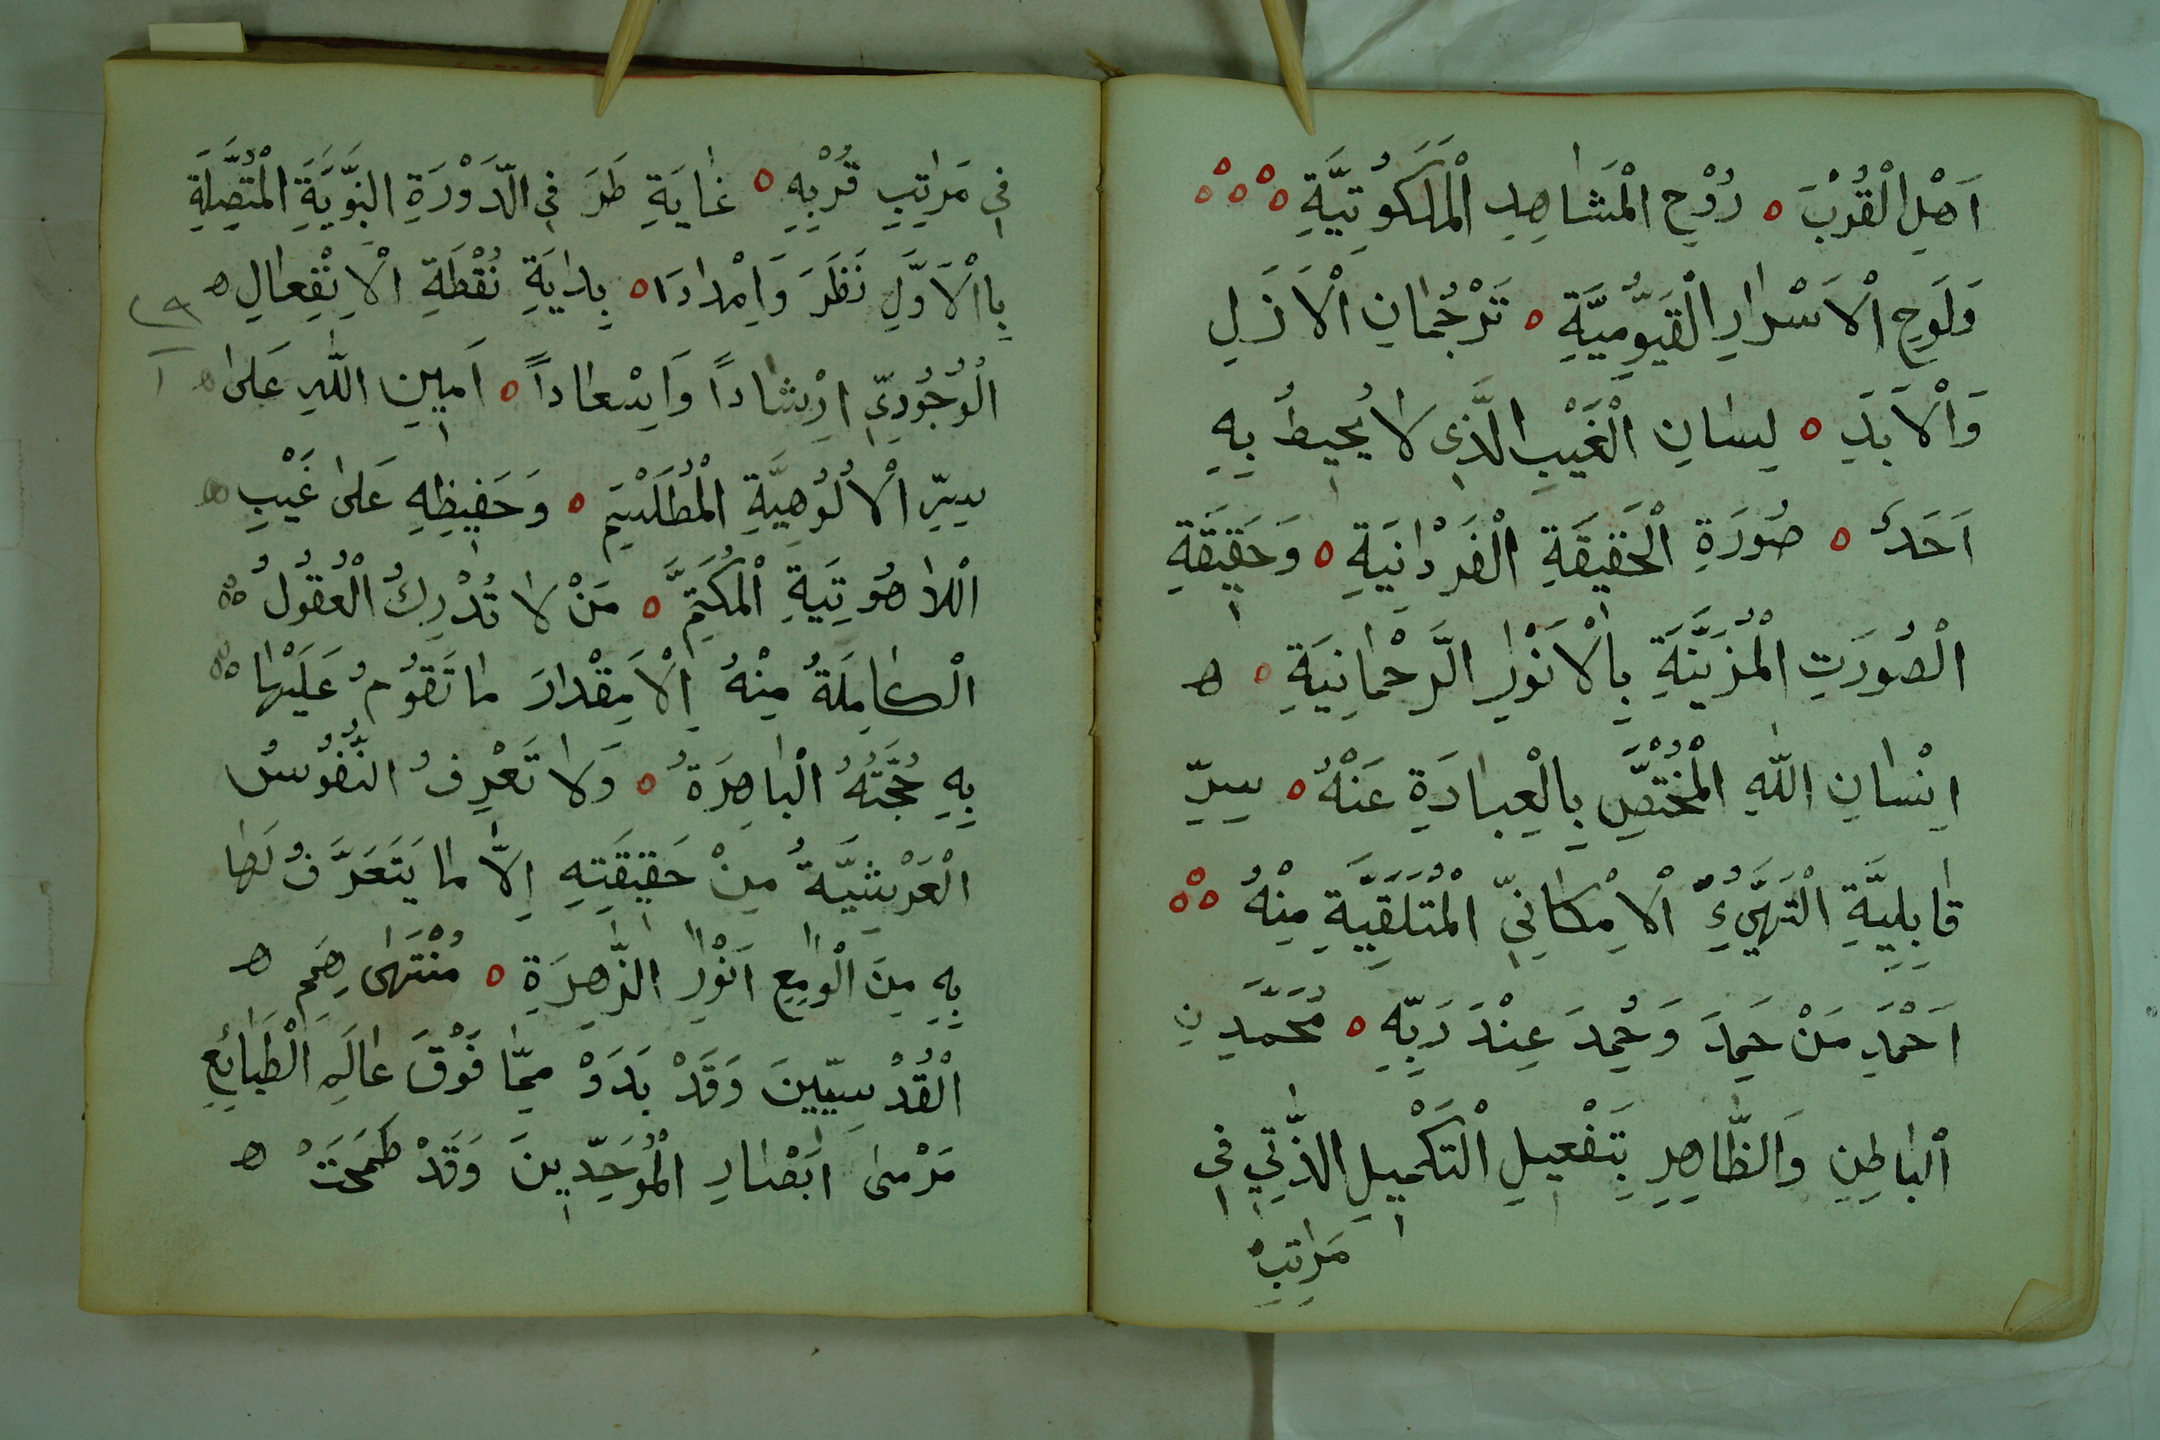 اَهْلِ الْقُرْبَ ه رُوْحِ الْمَشَاهِدِ الْمَلَكُوتِيَّةِ ه ه ه ه ه
وَلَوحِ الْاَسْرٰارِ الْقَيُّومِيَّةِ ه تَرْجُمٰانِ الْاَزَلِ
وَالْاَبَدِ ه لِسٰانِ الْغَيْبِ الَّذِى لاٰ يُحِيطُ بِهِ
اَحَدٌ ه صُورَةِ الْحَقِيقَةِ الْفَرْدٰانِيَةِ ه وَحَقِيقَةِ
الْصُورَتِ الْمُزَيَّنَةِ بِالْاَنْوٰارِ الرَّحْمٰانِيَةِ ه ه
اِنْسٰانِ اللّٰهِ الْمُخْتَصِّ بِالْعِبٰادَةِ عَنْهُ ه سِرِّ
قٰابِلِيَّةِ الْتَهَيُّءِ الْاِمْكٰانِىِّ الْمُتَلَقِّيَةِ مِنْهُ ه ه ه
اَحْمَدِ مَنْ حَمِدَ وَحُمِدَ عِنْدَ رَبِّهِ ه مُحَمَّدِ نِ
الْبٰاطِنِ وَالظّٰاهِرِ بِتَفْعِيلِ الْتَكْمِيلِ الذّٰتِىِ فِى
مَرٰاتِبِ
فِى مَرٰاتِبِ قُرْبِهِ ه غٰايَةِ طَرَ فِى الدَّوْرَةِ النَّبَوِيَّةِ الْمُتَّصِلَةِ
بِاالْاَوَّلِ نَظَرَ وَاِمْدٰادَا ه بِدٰايَةِ نُقْطَةِ الْاِنْفِعٰالِ ه
الْوُجُودِىِّ اِرْشٰاداً وَاِسْعٰاداً ه اَمِينِ اللّٰهِ عَلىٰ ه
سِرِّ الْاُلُوُهِيَّةِ الْمُطَلْسَمِ ه وَحَفِيظِهِ عَلىٰ غَيْبِ ه
الْلاٰهُوتِيَةِ الْمُكَتَّمِ ه مَنْ لاٰ تُدْرِكُ الْعُقُولُ ه ه ه
الْكٰامِلَةُ مِنْهُ اِلْاَمِقْدٰارَ مٰا تَقُوُمُ عَلَيْهٰا ه ه ه
بِهِ حُجَّتُهُ الْبٰاهِرَةُ ه وَلاٰ تَعْرِفُ النُّفُوسُ
الْعَرْشِيَّةُ مِنْ حَقِيقَتِهِ اِلّٰا مٰا يَتَعَرَّفُ لَهٰا
بِهِ مِنَ الْوٰامِعِ اَنْوٰارِ الزّٰهِرَةِ ه مُنْتَهٰى هِمَمِ ه
الْقُدْسِيّينَ وَقَدْ بَدَوْ مِمّٰا فَوْقَ عٰالَمِ الْطَبٰائِعِ
مَرْمىٰ اَبْصٰارِ الْمُوَحِّدِينَ وَقَدْ طَمَحَتْ ه